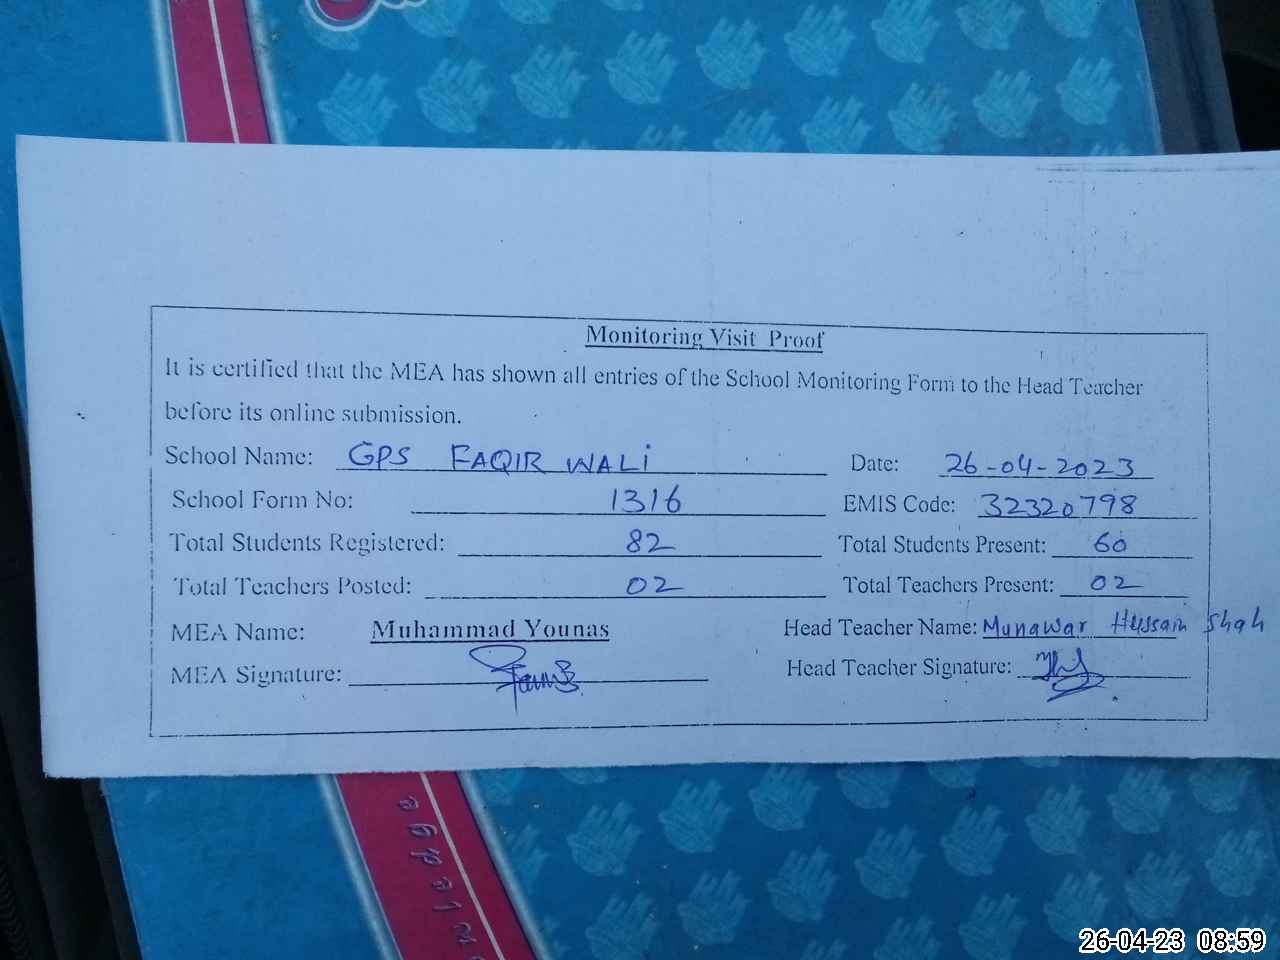 Monitoring Visit Proof
It is certified that the MEA has shown all entries of the School Monitoring Form to the Head Teacher
before its online submission.
School Name: GPS FAQIR WALI Date: 26-04-2023
School Form No: 1316 EMIS Code: 32320798
Total Students Registered: 82 Total Students Present: 60
Total Teachers Posted: 02 Total Teachers Present: 02
MEA Name: Muhammad Younas Head Teacher Name: Munawar Hussain Shah
MEA Signature: Head Teacher Signature:
26-04-23 08:59